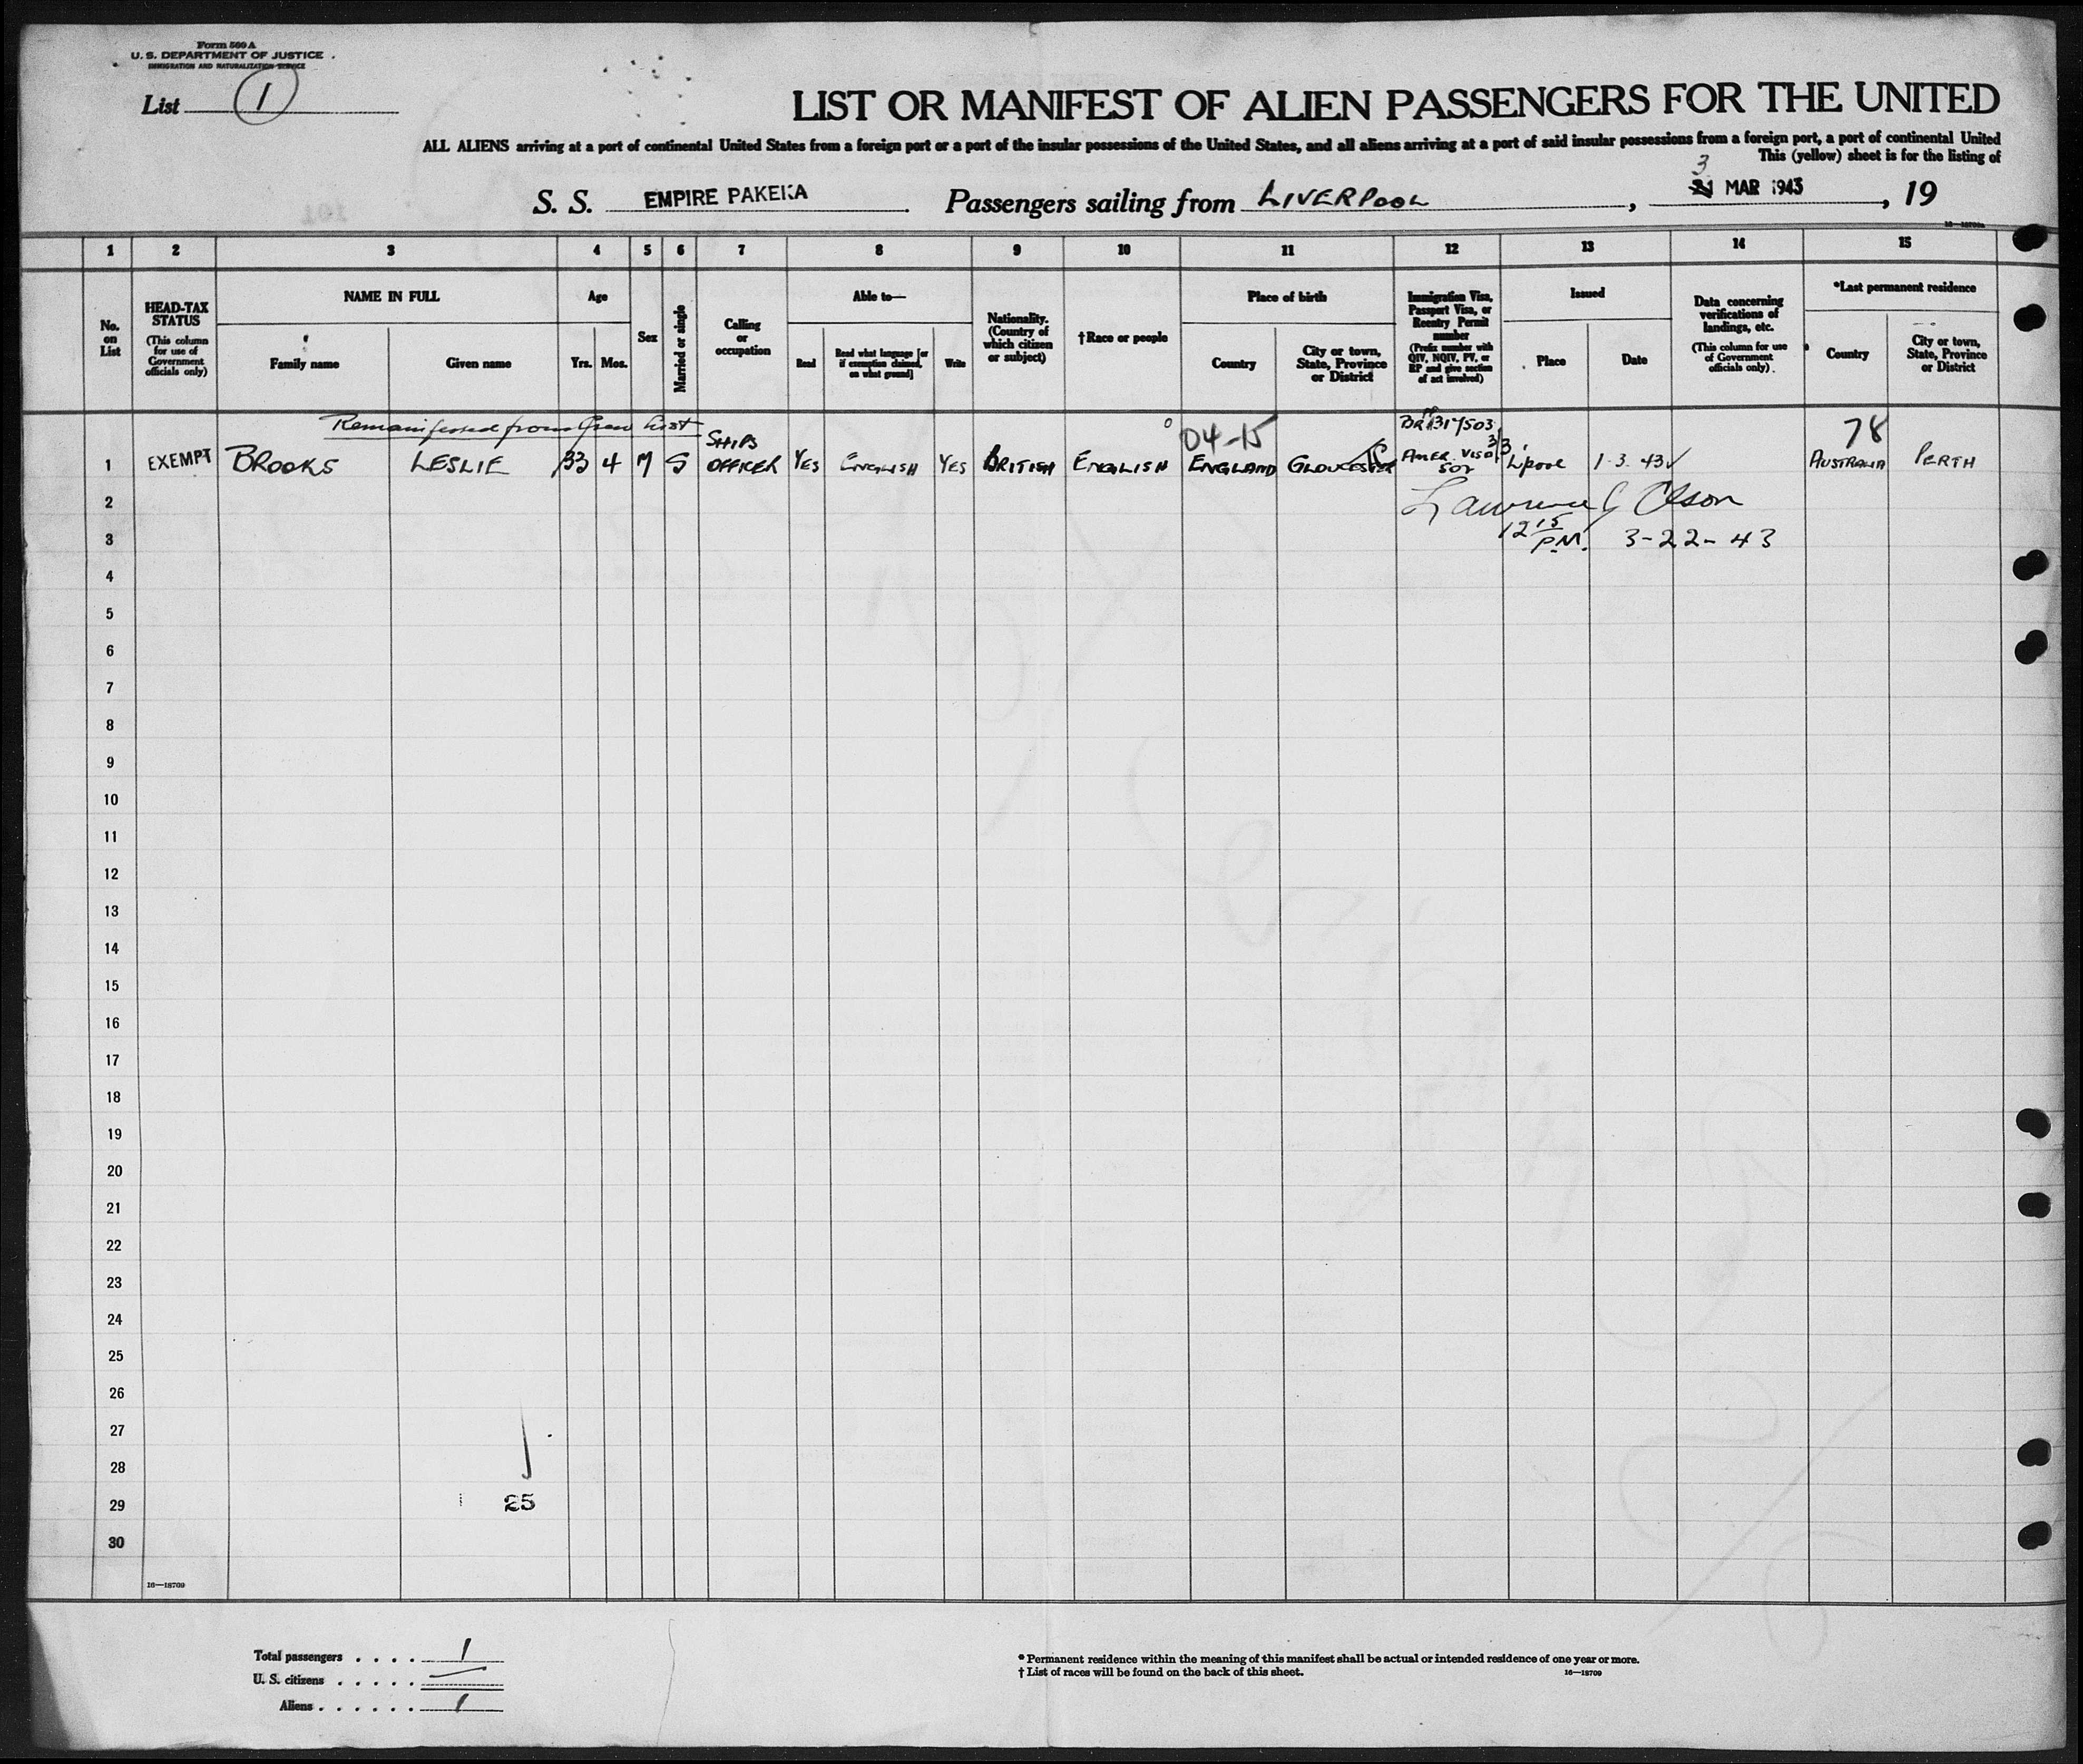 Form 500 A
U. S. DEPARTMENT OF JUSTICE
IMMIGRATION AND NATURALIZATION SERVICE
List 1
LIST OR MANIFEST OF ALIEN PASSENGERS FOR THE UNITED
ALL ALIENS arriving at a port of continental United States from a foreign port or a port of the insular possessions of the United States, and all aliens arriving at a port of said insular possessions from a foreign port, a port of continental United
This (yellow) sheet is for the listing of
3
S. S. EMPIRE PAKEHA Passengers sailing from LIVERPOOL, MAR 1943, 19
1 2 3 4 5 6 7 8 9 10 11 12 13 14 15
No. on List
HEAD-TAX STATUS (This column for use of Government officials only)
NAME IN FULL
Family name
Given name
Age
Yrs.
Mos.
Sex
Married or single
Calling or occupation
Able to—
Read
Read what language [or if exemption claimed, on what ground]
Write
Nationality. (Country of which citizen or subject)
†Race or people
Place of birth
Country
City or town, State, Province or District
Immigration Visa, Passport Visa, or Reentry Permit number (Prefix number with QIV, NQIV, PV, or RP and give section of act involved)
Issued
Place
Date
Data concerning verifications of landings, etc. (This column for use of Government officials only)
*Last permanent residence
Country
City or town, State, Province or District
Remanifested from Crew List
04-15
78
1 EXEMPT BROOKS LESLIE 33 4 M S SHIPS OFFICER YES ENGLISH YES BRITISH ENGLISH ENGLAND GLOUCESTER AMER. VISA 507 L'pool 1.3.43 AUSTRALIA PERTH
2 Lawrence G Olson
3 12 15 P.M. 3-22-43
4
5
6
7
8
9
10
11
12
13
14
15
16
17
18
19
20
21
22
23
24
25
26
27
28
29 25
30
16—18709
Total passengers . . . . 1
U. S. citizens . . . . .
Aliens . . . . . . 1
* Permanent residence within the meaning of this manifest shall be actual or intended residence of one year or more.
† List of races will be found on the back of this sheet. 16—18709